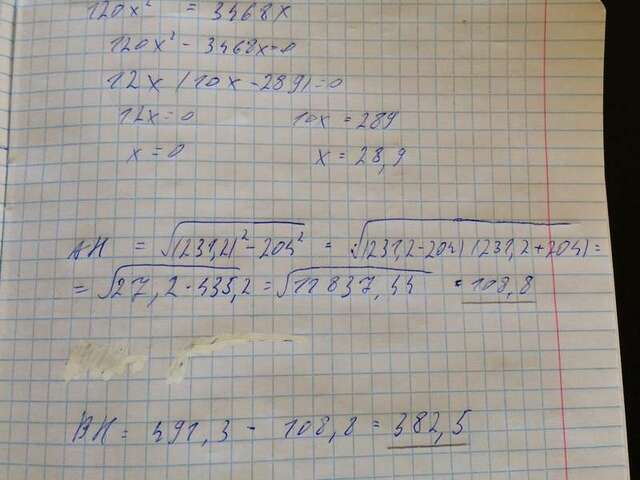 120x² = 3468x
120x² - 3468x=0
12x (10x - 289)=0
12x=0 10x = 289
x=0 x = 28,9
AH = √(231,2)² - 204² = √(231,2-204)(231,2+204) =
= √27,2 · 435,2 = √11837,44 = 108,8
BH = 491,3 - 108,8 = 382,5